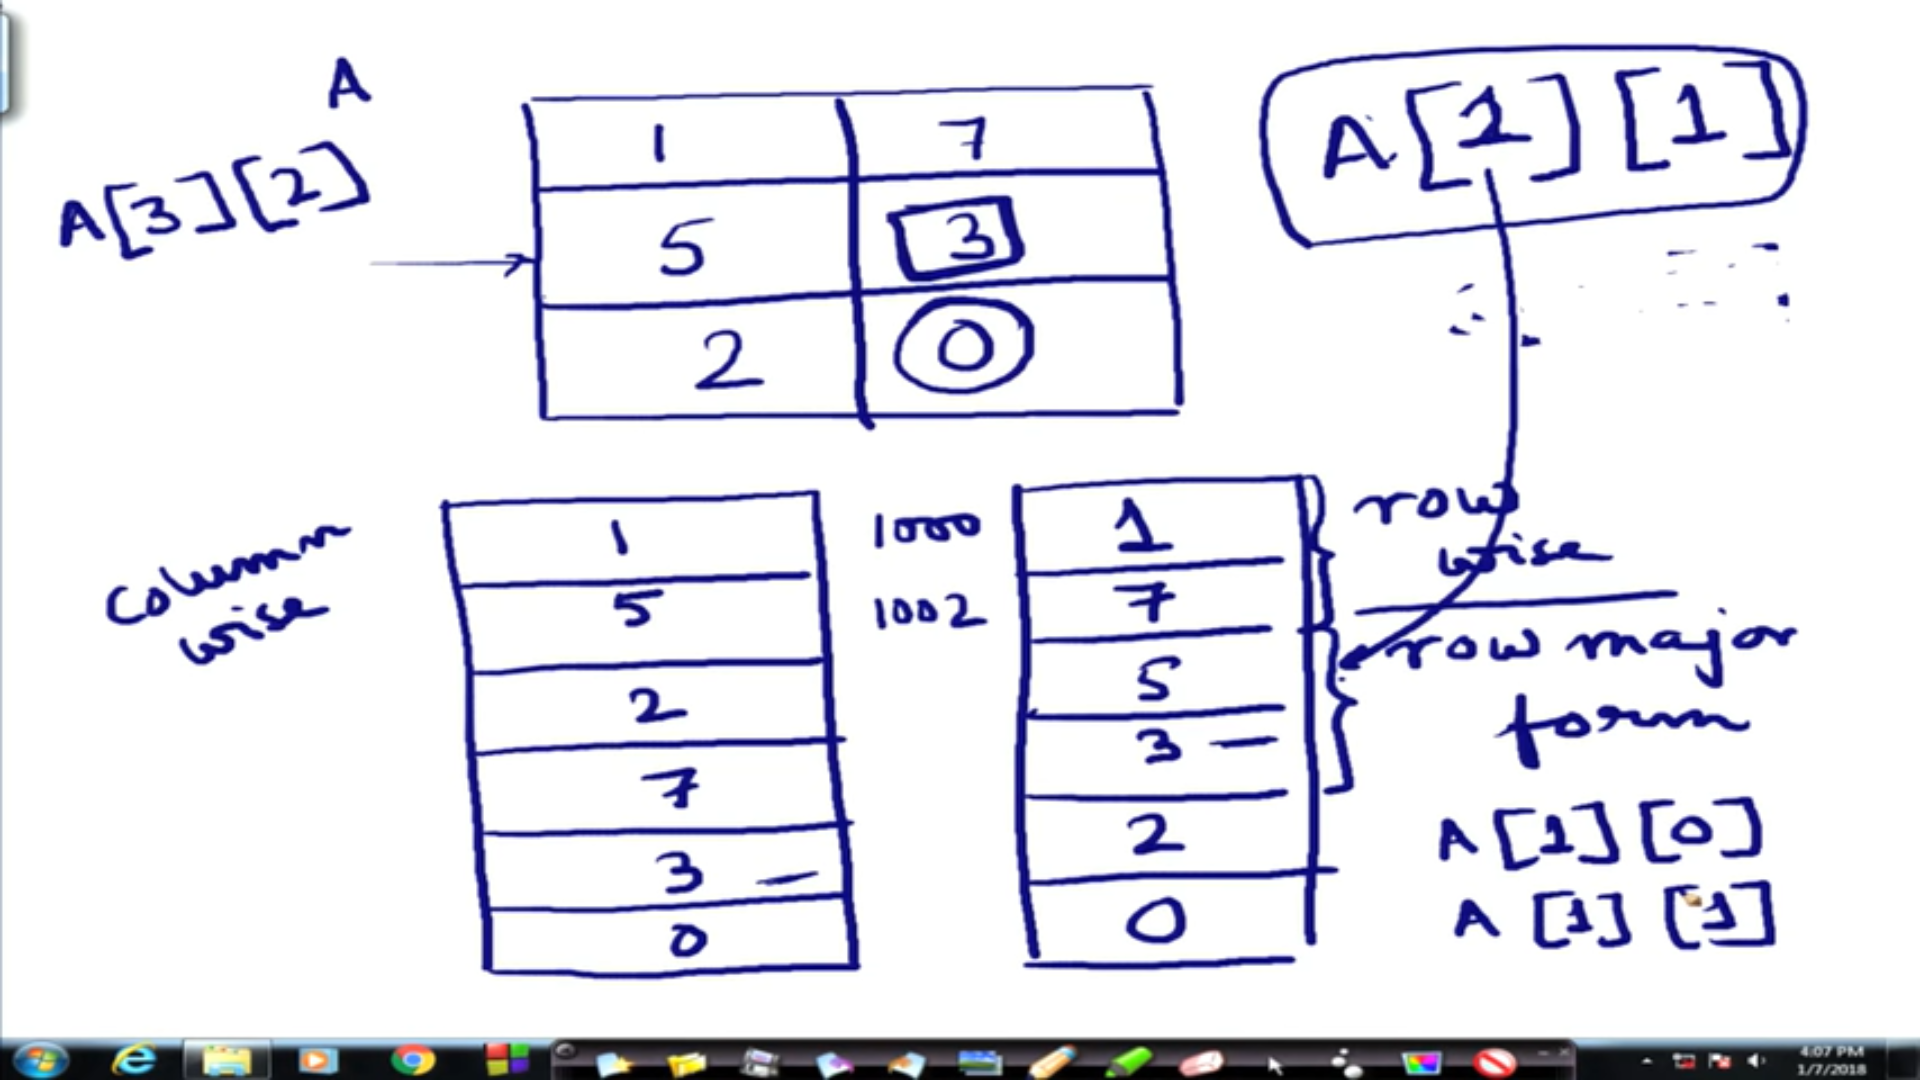 A
A[3][2]
1 7
5 3
2 0
A[1][1]
column
wise
1
5
2
7
3 –
0
1000
1002
1
7
5
3 –
2
0
row
wise
row major
form
A[1][0]
A[1][1]
4:07 PM
1/7/2018